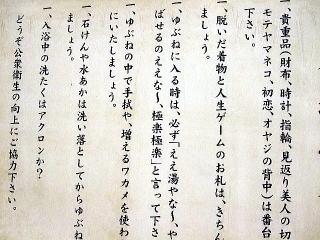 一、貴重品(財布、時計、指輪、見返り美人の切
モテヤマネコ、初恋、オヤジの背中)は番台
下さい。
一、脱いだ着物と人生ゲームのお札は、きちん
ましょう。
一、ゆぶねに入る時は、必ず「ええ湯やな〜、や
ばせるのええな〜、極楽極楽」と言って下さ
一、ゆぶねの中で手拭や、増えるワカメを使わ
にいたしましょう。
一、石けんや水あかは洗い落としてからゆぶね
ましょう。
一、入浴中の洗たくはアクロンか?
どうぞ公衆衛生の向上にご協力下さい。